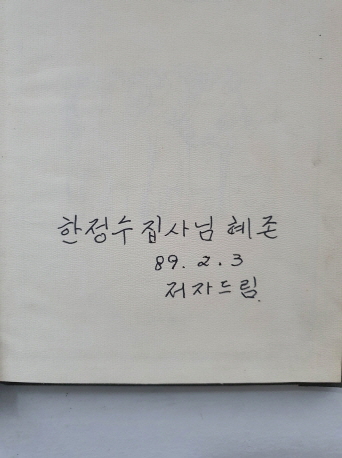 한정수 집사님 혜존
89. 2. 3
저자드림.